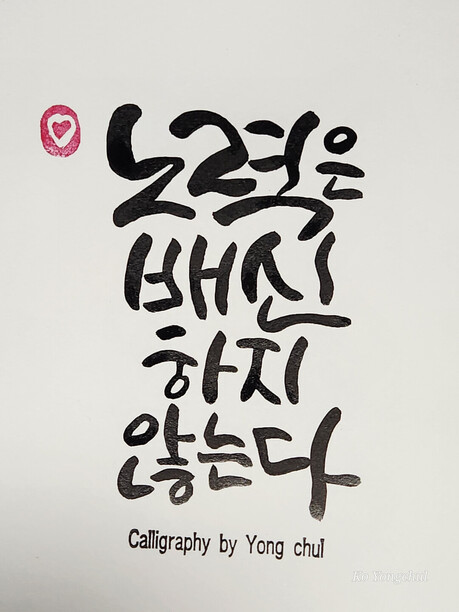 노력은
배신
하지
않는다
Calligraphy by Yong chul
Ko Yongchul